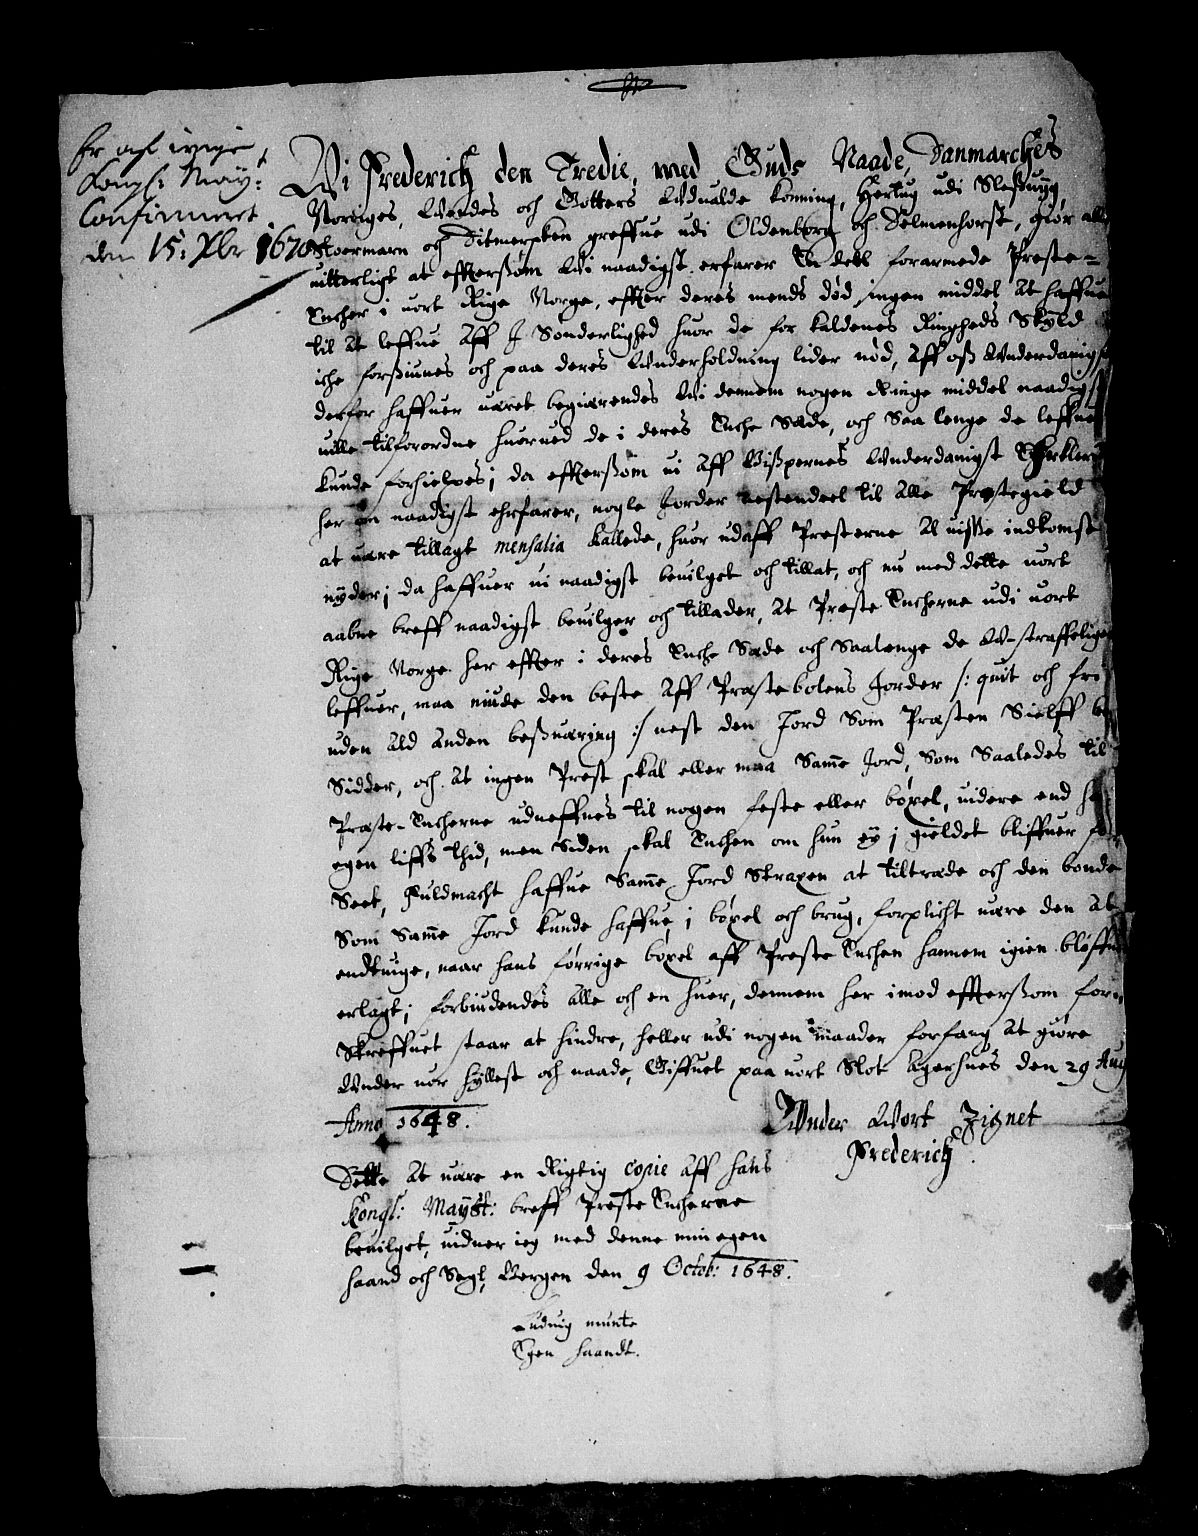 Er aff ivige
Kongl: May:
Confirmert
den 15: Xbr 1670
Wi Frederich den Tredie, med Guds Naade, Danmarckes
Norriges, Wendes och Gotters Wdualde Konning, Hertug udi Sleßuig,
Stoermarn och Ditmersken greffue udi Oldenborg och Delmenhorst, giør alle
uitterligt at effterßom Wi naadigst erfarer En deell forarmede Preste-
Encher i uort Rige Norge, effter deres mends død ingen middel At haffue
til At leffue Aff J Sonderlighed huor de for kaldenes Ringheds Skyld
iche forßiunes och paa deres Wnderholdning lider nød, Aff oß Wnderdanigst
derfor haffuer uæret begiærendes Wi dennem nogen Ringe middel naadigst
uille tilforordne huorued de i deres Enche Sæde, och Saa lenge de leffue
kunde forhielpes; da effterßom ui Aff Bißpernes Wnderdanigst Erklering
her om naadigst ehrfarer, nogle Jorder nestendeel til Alle Prestegield
at uære tillagt mensalia kallede, huor udaff Presterne Al uiße indkomst
nyder; da haffuer ui naadigst beuilget och tillat, och nu med dette uort
aabne breff naadigst beuilger och tillader, At Præste Encherne udi uort
Rige Norge her effter i deres Enche Sæde och Saalenge de W-straffeligen
leffuer, maa niude den beste Aff Præstebolens Jorder /: quit och fri
uden Ald Anden beßuæring :/ nest den Jord Som Præsten Sielff be-
Sidder, och At ingen Prest skal eller maa Samme Jord, Som Saaledes til
Præste-Encherne udneffnes til nogen feste eller bøxel, uidere end hans
egen liffs thid, men Siden skal Enchen om hun ey i gieldet bliffuer for-
Seet, Fuldmacht haffue Samme Jord Straxen at tiltræde och den bonde
Som Samme Jord kunde haffue i bøxel och brug, forplicht uære den At
endtuige, naar hans førrige bøxel aff Preste Enchen hannem igien bleffue
erlagt; forbiudendes Alle och en huer, dennem her imod effterßom for-
Skreffuet staar at hindre, heller udi nogen maader forfang At giøre
Wnder uor hyllest och naade, Giffuet paa uort Slot Agerhues den 29 Aug
Anno 1648.
Wnder Wort Zignet
Frederich
Dette At uære en Rigtig copie Aff hans
Kongl: Mayst: breff Preste Encherne
beuilget, uidner ieg med denne min egen
haand och Segl, Bergen den 9 Octob: 1648.
Luduig munte
Egen haandt.